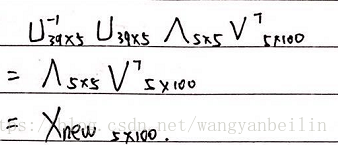 U⁻¹₃₉ₓ₅ U₃₉ₓ₅ Λ₅ₓ₅ Vᵀ₅ₓ₁₀₀
= Λ₅ₓ₅ Vᵀ₅ₓ₁₀₀
= Xnew ₅ₓ₁₀₀.
https://blog.csdn.net/wangyanbeilin